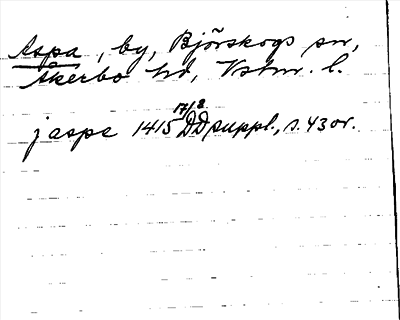 Aspa, by, Björskogs sn,
Åkerbo hd, Vstm. l.
j aspe 1415 17/2 DD suppl., s. 43 or.